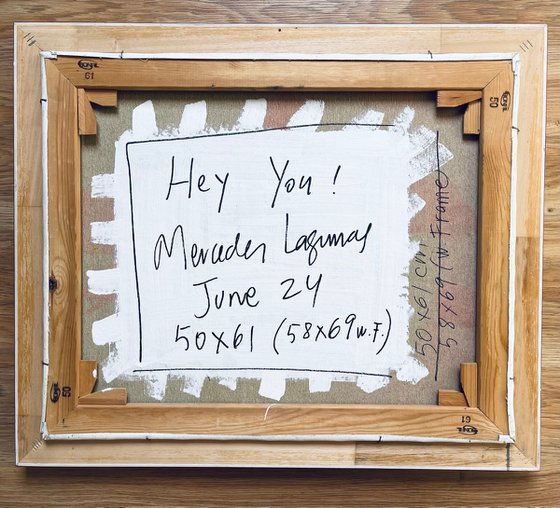 Hey You!
Mercedes Lagunas
June 24
50x61 (58x69 w.F.)
50x61 cm
58x69 (w Frame)
61
50
50
61